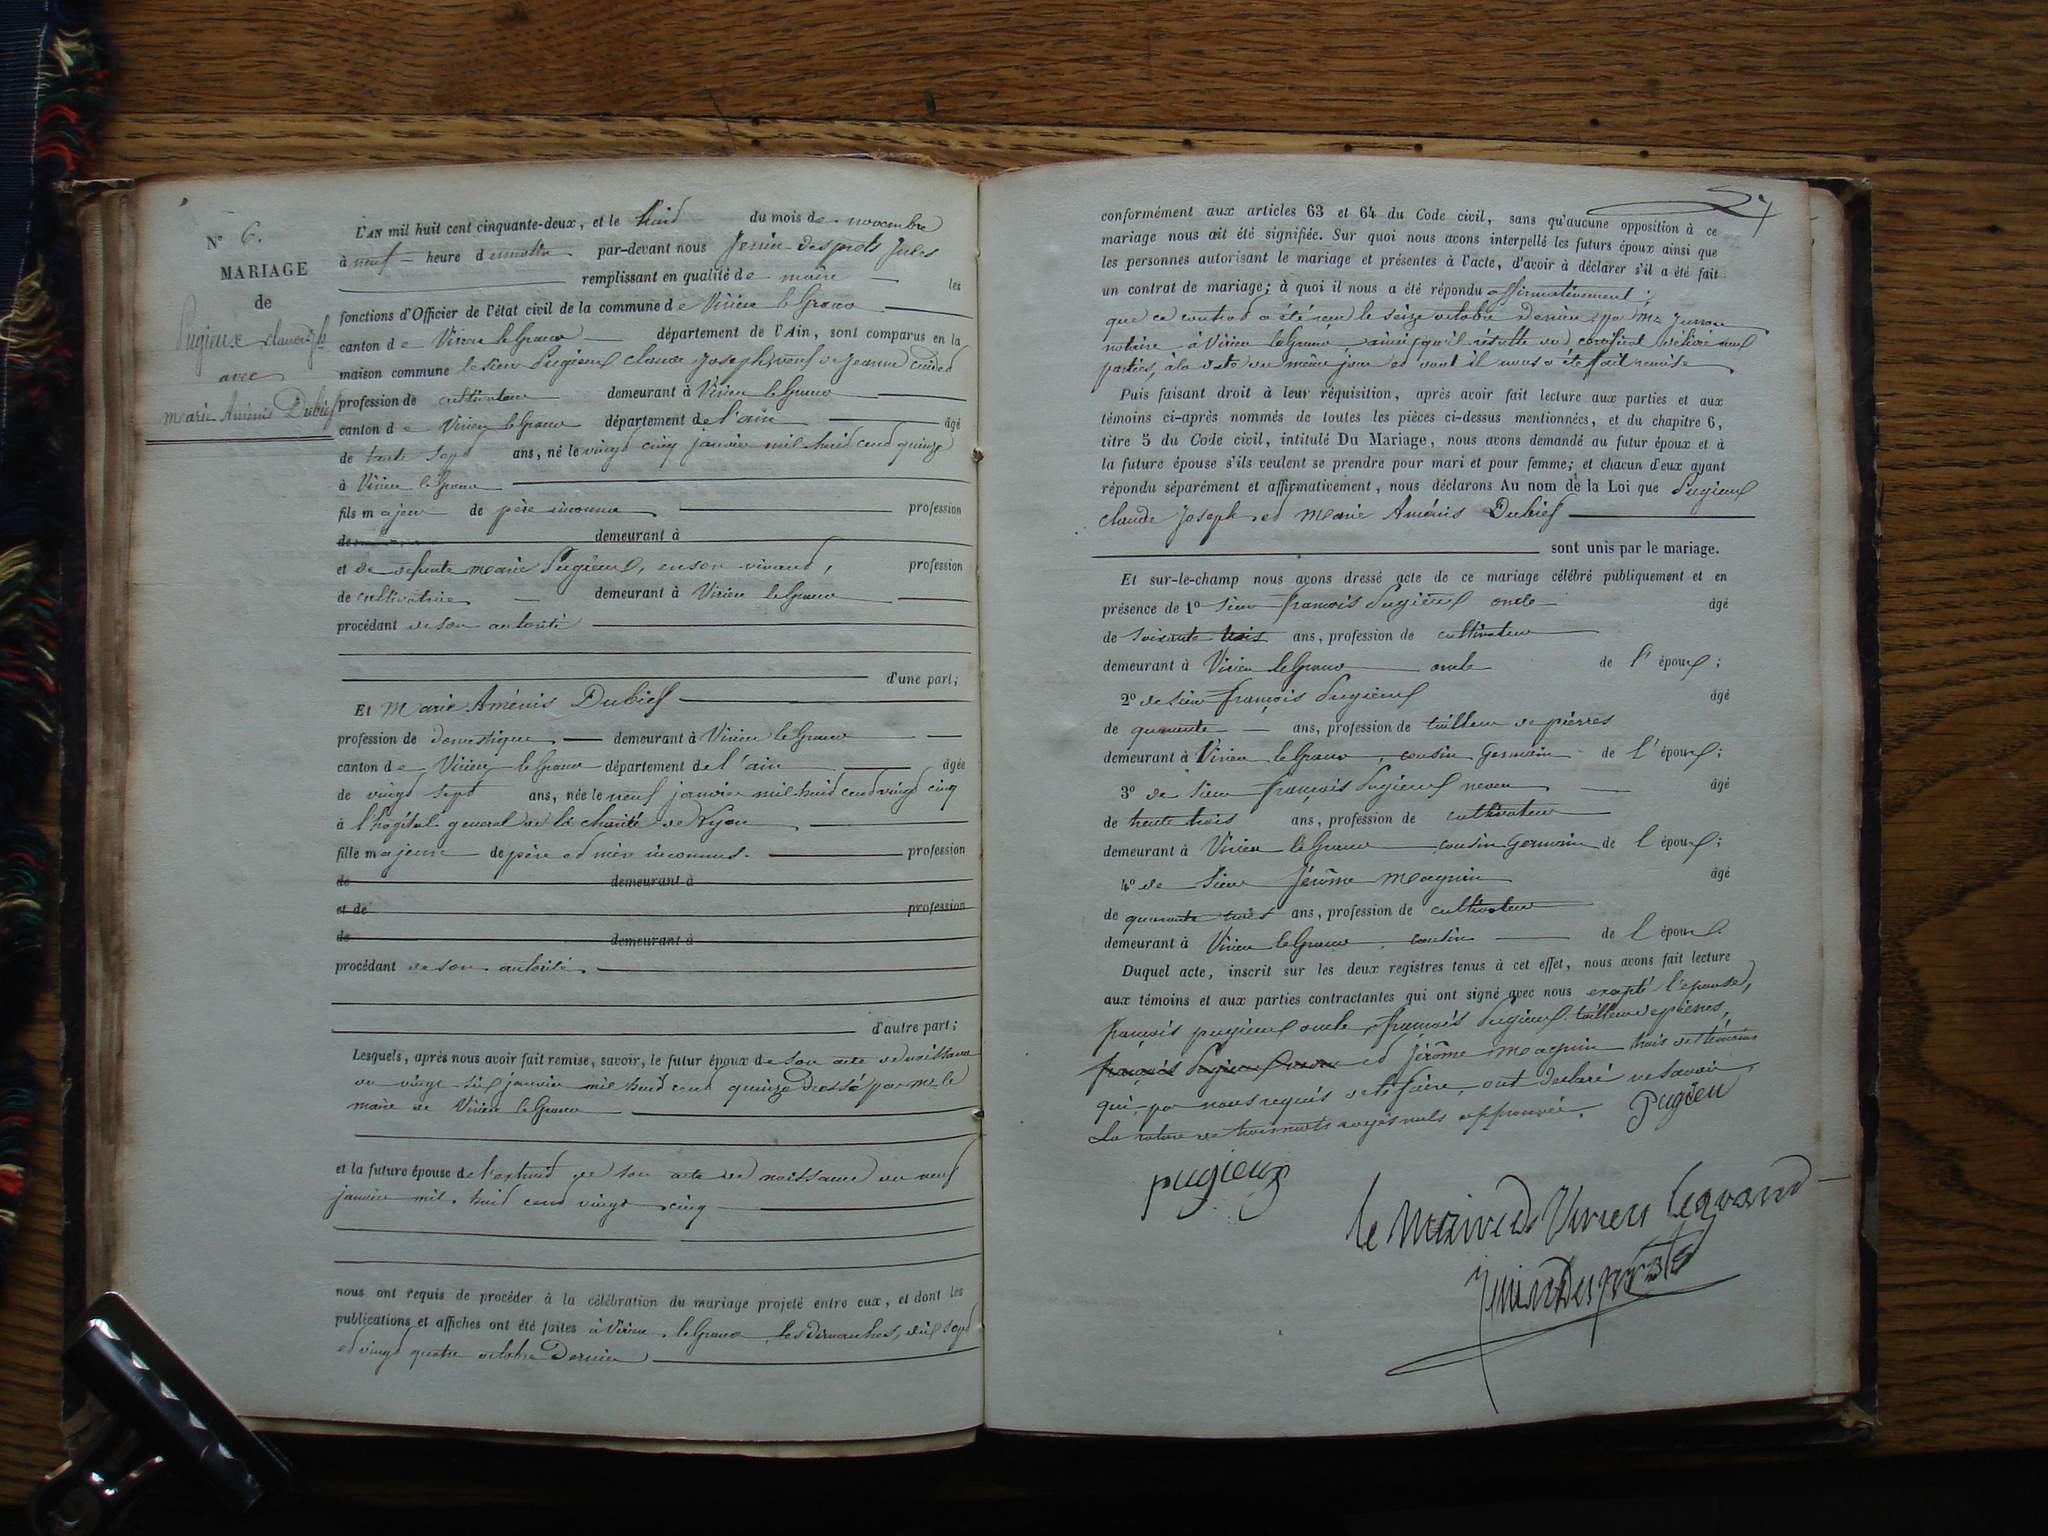 N° 6.
MARIAGE
de
Pugieux claude jh
avec
marie Aménis Dubief
L'AN mil huit cent cinquante-deux, et le huit du mois de novembre
à neuf heure du matin par-devant nous Jenin-des prots Jules
remplissant en qualité de maire les
fonctions d'Officier de l'état civil de la commune de Virieu le Grand
canton de Virieu le Grand département de l'Ain, sont comparus en la
maison commune le sieur Pugieux claude Joseph, veuf de Jeanne
profession de cultivateur demeurant à Virieu le Grand
canton de Virieu le Grand département de l'ain âgé
de trente sept ans, né le vingt cinq janvier mil huit cent quinze
à Virieu le Grand
fils majeur de père inconnu profession
de demeurant à
et de defunte marie Pugieux, en son vivant, profession
de cultivatrice demeurant à Virieu le Grand
procédant de son autorité
d'une part;
Et Marie Aménis Dubief
profession de domestique demeurant à Virieu le Grand
canton de Virieu le Grand département de l'ain âgée
de vingt sept ans, née le neuf janvier mil huit cent vingt cinq
à l'hopital general de la charité de Lyon
fille majeure de père et mère inconnus. profession
de demeurant à
et de profession
de demeurant à
procédant de son autorité
d'autre part;
Lesquels, après nous avoir fait remise, savoir, le futur époux de son acte de naissance
du vingt-six janvier mil huit cent quinze dressé par mr le
maire de Virieu le Grand
et la future épouse de l'extrait de son acte de naissance du neuf
janvier mil huit cent vingt cinq
nous ont requis de procéder à la célébration du mariage projeté entre eux, et dont les
publications et affiches ont été faites à Virieu le Grand les dimanches, dix sept
et vingt quatre octobre dernier
conformément aux articles 63 et 64 du Code civil, sans qu'aucune opposition à ce
mariage nous ait été signifiée. Sur quoi nous avons interpellé les futurs époux ainsi que
les personnes autorisant le mariage et présentes à l'acte, d'avoir à déclarer s'il a été fait
un contrat de mariage; à quoi il nous a été répondu affirmativement;
que ce contrat a été reçu le seize octobre dernier par Me
notaire à Virieu le Grand, ainsi qu'il résulte du certificat délivré aux
parties, à la date du même jour et dont il nous a été fait remise
Puis faisant droit à leur réquisition, après avoir fait lecture aux parties et aux
témoins ci-après nommés de toutes les pièces ci-dessus mentionnées, et du chapitre 6,
titre 5 du Code civil, intitulé Du Mariage, nous avons demandé au futur époux et à
la future épouse s'ils veulent se prendre pour mari et pour femme; et chacun d'eux ayant
répondu séparément et affirmativement, nous déclarons Au nom de la Loi que Pugieux
claude Joseph et Marie Aménis Dubief
sont unis par le mariage.
Et sur-le-champ nous avons dressé acte de ce mariage célébré publiquement et en
présence de 1° sieur françois Pugieux oncle âgé
de soixante trois ans, profession de cultivateur
demeurant à Virieu le Grand oncle de l'époux;
2° de sieur françois Pugieux âgé
de quarante ans, profession de tailleur de pierres
demeurant à Virieu le Grand, cousin Germain de l'époux;
3° de sieur françois Pugieux neveu âgé
de trente trois ans, profession de cultivateur
demeurant à Virieu le Grand cousin Germain de l'époux;
4° de sieur Jérôme Magnin âgé
de quarante trois ans, profession de cultivateur
demeurant à Virieu le Grand, cousin de l'époux
Duquel acte, inscrit sur les deux registres tenus à cet effet, nous avons fait lecture
aux témoins et aux parties contractantes qui ont signé avec nous excepté l'épouse,
françois pugieux oncle, françois Pugieux tailleur de pierres,
françois Pugieux neveu et Jérôme Magnin trois des témoins
qui, par nous requis de le faire, ont déclaré ne savoir.
La rature de trois mots rayés nuls approuvée. Pugieu
pugieux
le Maire de Virieu legrand
Jenin Desprots